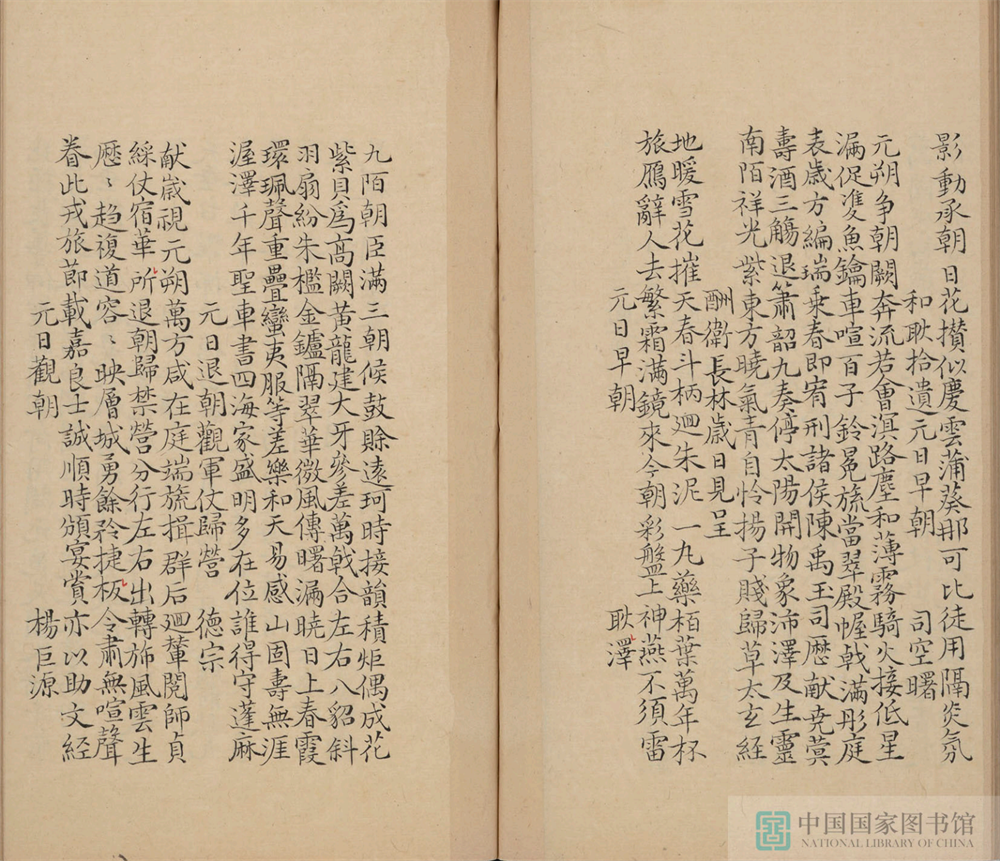 影動承朝日花攢似慶雲蒲葵那可比徒用隔炎氛
和耿拾遺元日早朝　司空曙
元朔争朝闕奔流若會溟路塵和薄霧騎火接低星
漏促雙魚鑰車喧百子鈴冕旒當翠殿幄戟滿彤庭
表歲方編瑞乘春即宥刑諸侯陳禹玉司厯献尭蓂
壽酒三觴退簫韶九奏停太陽開物象沛澤及生靈
南陌祥光紫東方曉氣青自怜揚子賤歸草太玄経
酬衛長林歲日見呈
地暖雪花摧天春斗柄廻朱泥一九藥栢葉萬年杯
旅鴈辭人去繁霜滿鏡來今朝彩盤上神燕不須雷
元日早朝　耿澤
九陌朝臣滿三朝候鼓賖逺珂時接韻積炬偶成花
紫貝爲高闕黄龍建大牙參差萬戟合左右八貂斜
羽扇紛朱檻金鑪隔翠華微風傳曙漏曉日上春霞
環珮聲重疊蠻夷服等差樂和天易感山固壽無涯
渥澤千年聖車書四海家盛明多在位誰得守蓬麻
元日退朝觀軍仗歸營　德宗
献歲視元朔萬方咸在庭端旒揖群后廻輦閱師貞
綵仗宿華所退朝歸禁營分行左右出轉斾風雲生
厯〻趋複道容〻映層城勇餘矜捷板令肅無喧聲
眷此戎旅節載嘉良士誠順時頒宴賞亦以助文経
元日觀朝　楊巨源
中国国家图书馆
NATIONAL LIBRARY OF CHINA